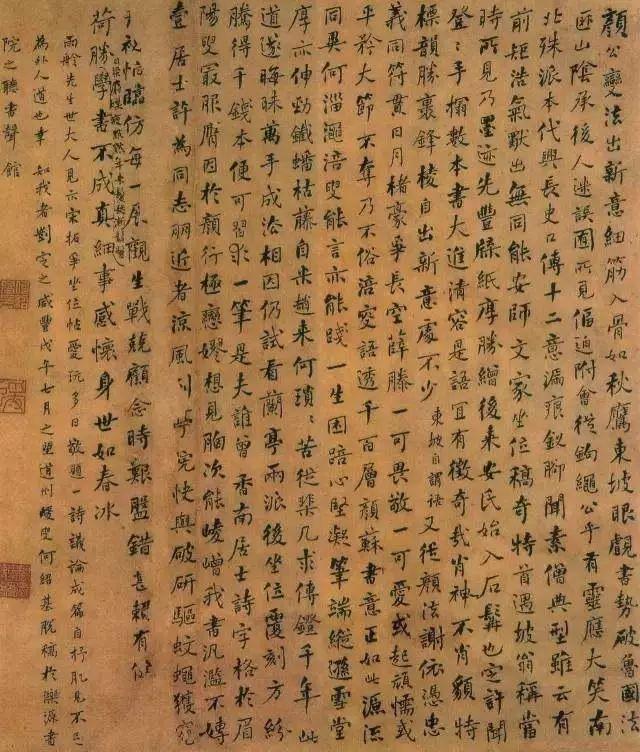 顏公變法出新意細筋入骨如秋鷹東坡眼覷書勢破魯國法
匪山陰承後人迷誤図所見傴迫附會從鉤繩公乎有靈應大笑南
北殊派本代興長史口傳十二意漏痕釵腳聞素僧典型雖云有
前矩浩氣默出無同能安師文家坐位稿奇特首遇坡翁稱當
時所見乃墨迹先豐牘紙摩勝繒後來安民始入石髯也定許聞
登登手搨數本書大進清容是語宜有徵奇哉肖神不肖貌特
標韻勝裹鋒棱自出新意處不少東坡自謂語又從顏法謝依憑忠
義同符貫日月楮豪爭長空薛滕一可畏敬一可愛或起頑懦或
平矜大節不奪乃不俗涪叟語透千百層顏蘇書意正如此源流
同異何淄澠涪叟能言亦能踐一生困踣心堅凝筆端縱遜雪堂
厚亦伸勁鐵蟠枯藤自米趙來何瑣瑣苦從棐几求傳鐙千年此
道遂晦昧萬手成沿相因仍試看蘭亭兩派後坐位覆刻方紛
騰得千錢本便可習求一筆是夫誰曾香南居士詩字格於眉
陽叟最服膺因於顏行極戀嫪想見胸次能崚嶒我書汎濫不專
壹居士許為同志朋近者涼風到學究快與破研驅蚊蠅獲窺
于祕恣臨仿每一展觀生戰兢顧念時艱盬錯甚賴有
荷勝學書不成真細事感懷身世如春冰
雨舲先生世大人見示宋拓爭坐位帖愛玩多日敬題一詩議論成篇自抒肊見不足
為外人道也幸如我者劉宥之咸豐戊午七月之望道州蝯叟何紹基脫稿於濼源書
院之聽書聲館